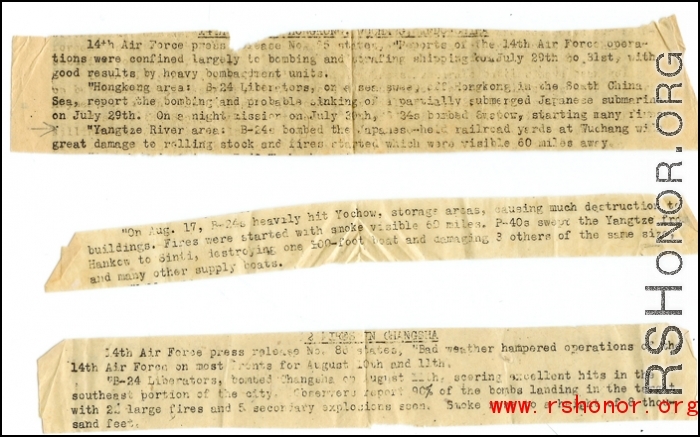 14th Air Force press release No. states, "Reports of the 14th Air Force opera-
tions were confined largely to bombing and strafing shipping on July 29th to 31st, with
good results by heavy bombardment units.
"Hongkong area: B-24 Liberators, on a sea off Hongkong, in the South China
Sea, report the bombing and probable sinking of a partially submerged Japanese submarin
on July 29th. On a night mission on July bombed Swatow, starting many
"Yangtze River area: B-24s bombed the Japanese-held railroad yards at Wuchang wi
great damage to rolling stock and fires started which were visible 60 miles away.
"On Aug. 17, B-24s heavily hit Yochow, storage areas, causing much destruction
buildings. Fires were started with smoke visible 60 miles. P-40s swept the Yangtze
Hankow to Sinti, destroying one boat and damaging 3 others of the same si
and many other supply boats.
IN CHANGSHA
14th Air Force press release No. 86 states, "Bad weather hampered operations
14th Air Force on most fronts for August 10th and 11th.
"B-24 Liberators, bombed Changsha on August 11th, scoring excellent hits in the
southeast portion of the city. Observers report 90% of the bombs landing in the
with large fires and 5 secondary explosions seen. Smoke to a height of 6 thou-
sand feet.
RSHONOR.ORG
www.rshonor.org